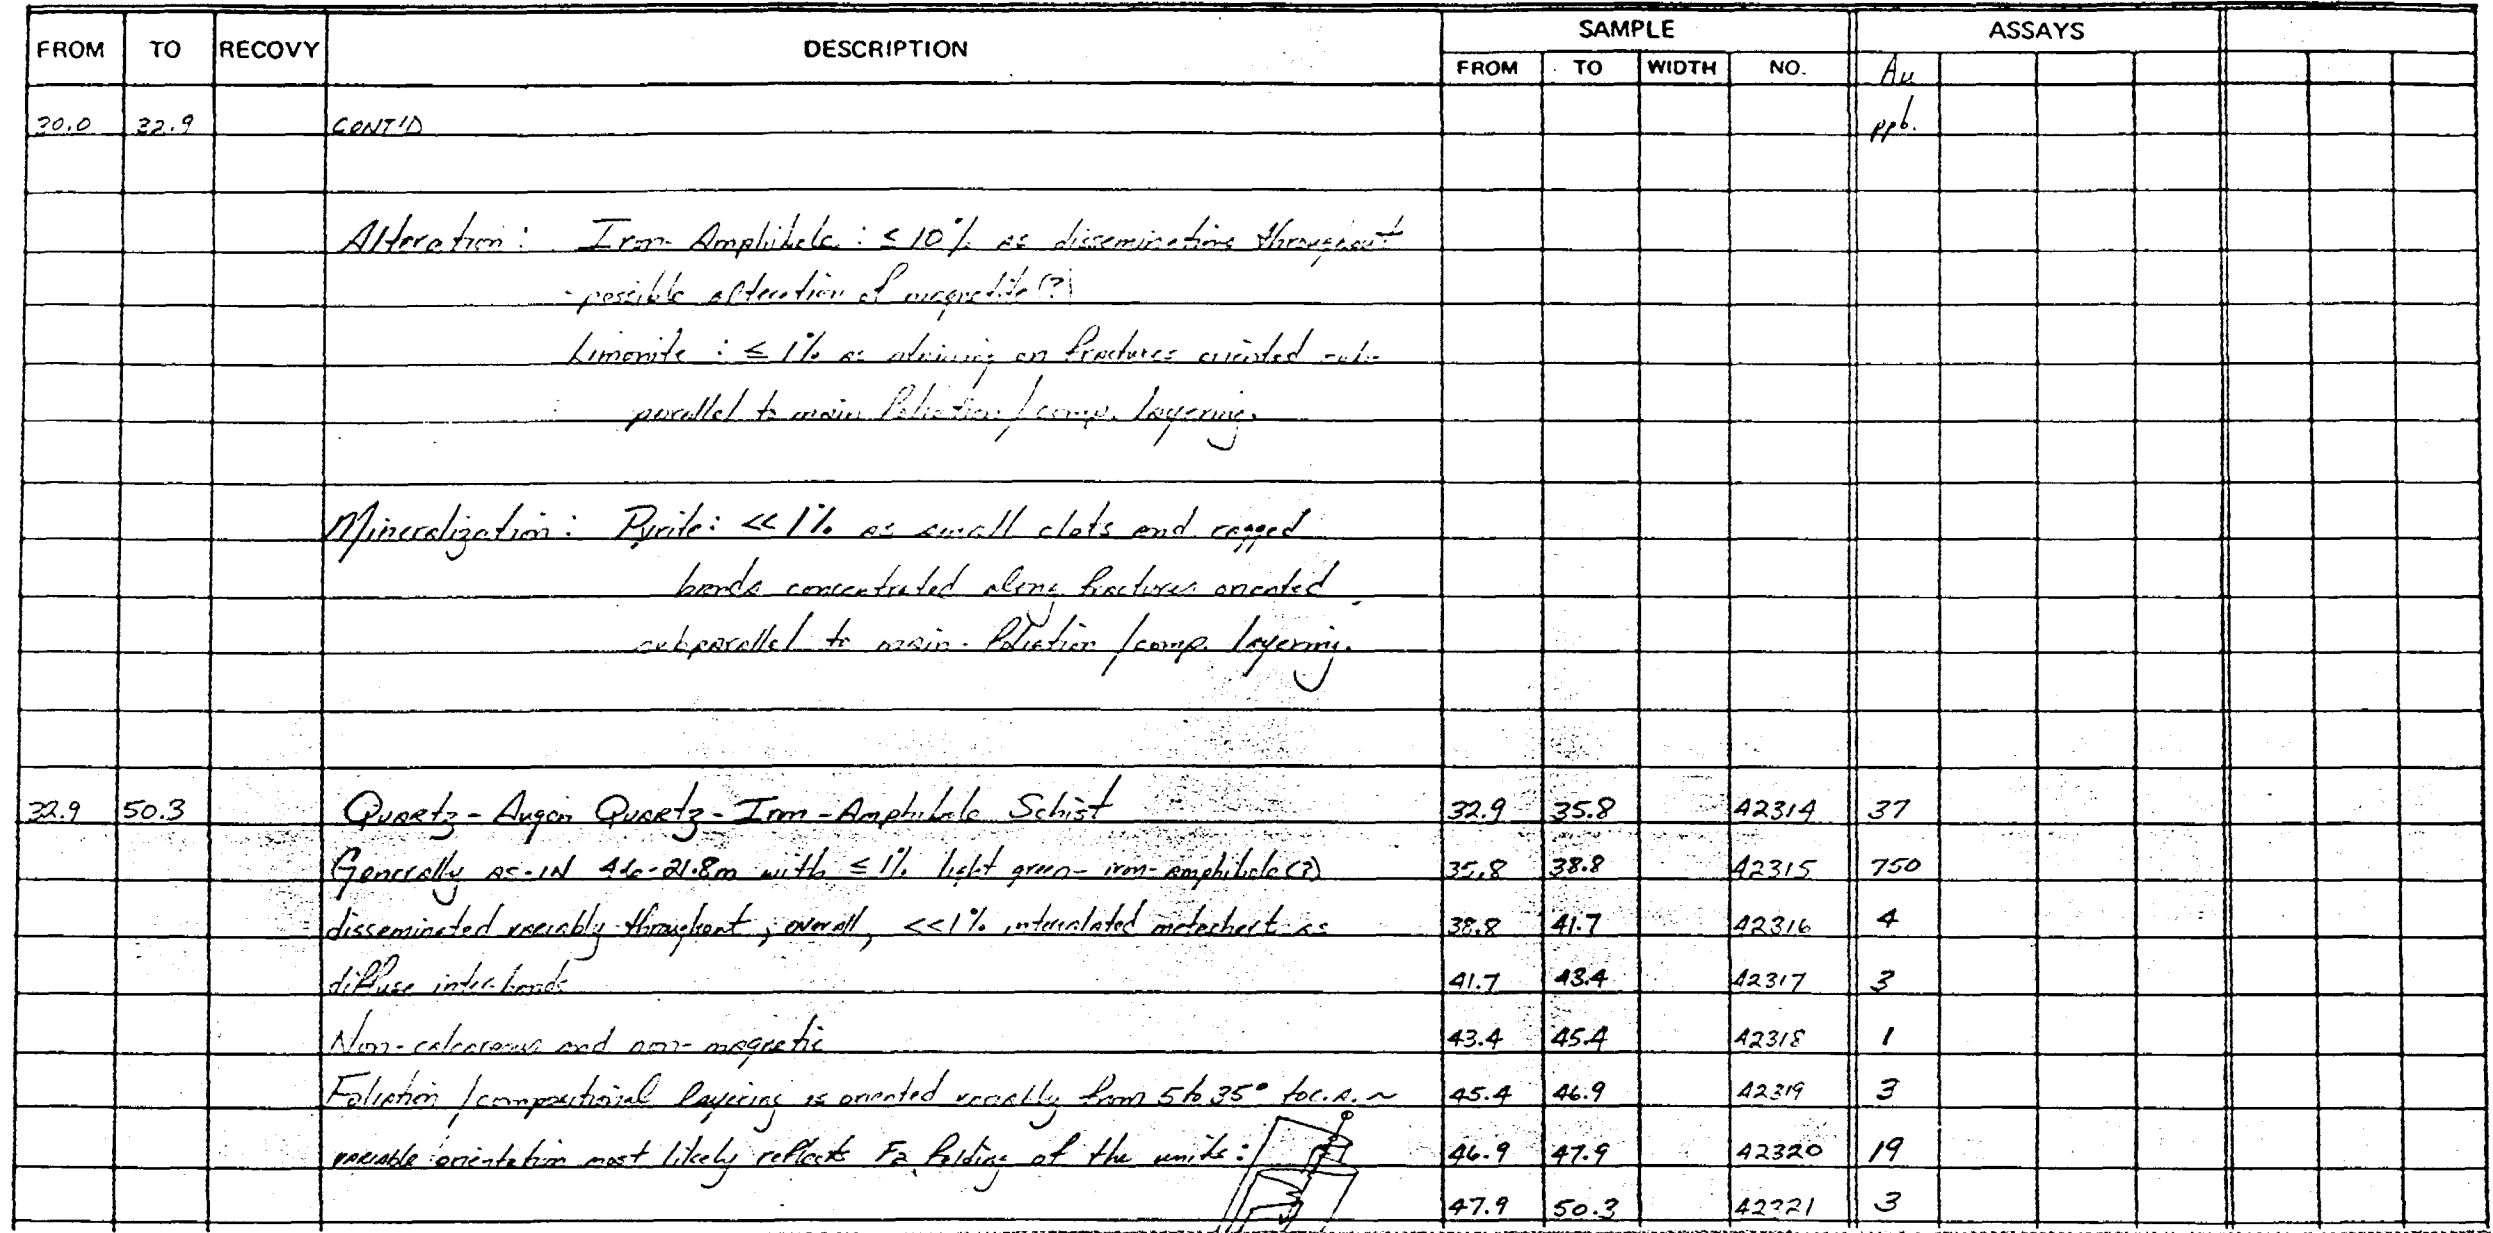 FROM TO RECOVY DESCRIPTION SAMPLE ASSAYS
FROM TO WIDTH NO. Au
30.0 32.9 CONT'D ppb.
Alteration: Iron-Amphibole: ≤10% as disseminations throughout
- possible alteration of magnetite(?)
Limonite: ≤1% as staining on fractures oriented sub-
parallel to main foliation/comp. layering.
Mineralization: Pyrite: <<1% as small clots and ragged
bands concentrated along fractures oriented
subparallel to main foliation/comp. layering.
32.9 50.3 Quartz-Augen Quartz-Iron-Amphibole Schist 32.9 35.8 42314 37
Generally as-IN 4.6-21.8m with ≤1% light green-iron-amphibole(?) 35.8 38.8 42315 750
disseminated variably throughout; overall, <<1% intercalated metachert as 38.8 41.7 42316 4
diffuse inter-bands 41.7 43.4 42317 3
Non-calcareous and non-magnetic 43.4 45.4 42318 1
Foliation/compositional layering is oriented variably from 5 to 35° to c.a. ~ 45.4 46.9 42319 3
variable orientation most likely reflects F2 folding of the units: 46.9 47.9 42320 19
47.9 50.3 42321 3